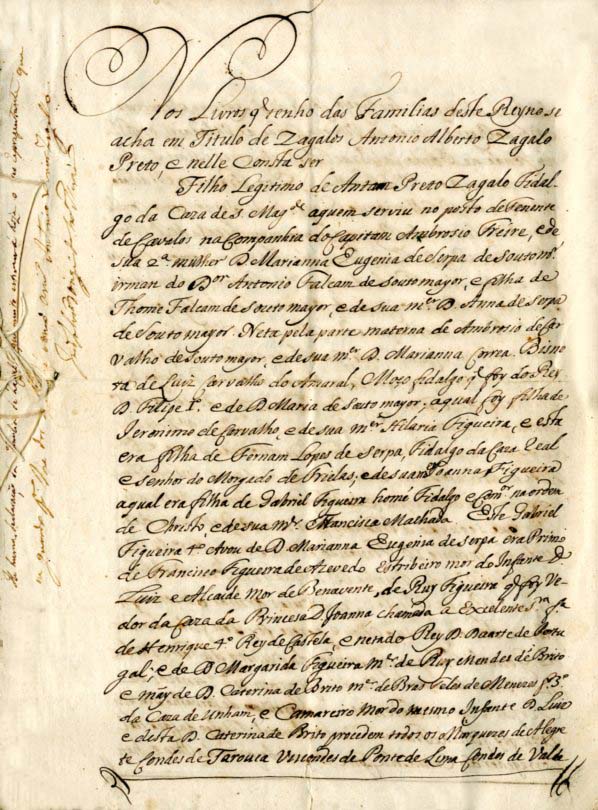 Nos Livros q̃ tenho das Familias deste Reyno se
acha em Titulo de Zagalos Antonio Alberto Zagalo
Preto, e nelle Consta ser
Filho Legitimo de Antam Preto Zagalo Fidal-
go da Caza de S. Magde aquem serviu no posto de Tenente
de Cavalos na Companhia do Capitam Ambrosio Freire, e de
sua 2ª mulher D. Marianna Eugenia de Serpa de Soutomr.
irman do Dor Antonio Falcam de souto mayor, e filha de
Thome Falcam de Souto mayor, e de sua mer D. Anna de Serpa
de Souto mayor. Neta pela parte materna de Ambrosio de Car-
valho de Souto mayor, e de sua mer D. Marianna Correa. Bisne-
ta de Luiz Carvalho do Amaral, Moço fidalgo q̃ foy do Rey
D. Filipe 1º. e de D. Maria de Souto mayor, a qual foy filha de
Jeronimo de Carvalho, e de sua mer Hilaria Figueira, e esta
era filha de Firnam Lopes de Serpa, Fidalgo da Caza Real
e senhor do Morgado de Frielas; e de sua mer Joanna Figueira
a qual era filha de Gabriel Figueira home Fidalgo e Comor na ordem
de Christo, e de sua mer Francisca Machada Este Gabriel
Figueira 4º Avou de D. Marianna Eugenia de Serpa era Primo
de Francisco Figueira de Azevedo Estribeiro mor do Infante D.
Luiz e Alcaide Mor de Benavente, de Ruy Figueira q̃ foy Ve-
dor da Caza da Princesa D. Joanna chamada a Excelente Sra fa
de Henrique 4º Rey de Castela, e neta do Rey D. Duarte de Portu-
gal; e de D. Margarida Figueira mer de Ruy Mendes de Brito
e may de D. Caterina de Brito mer de Brás Teles de Menezes fo 3º
da Caza de Unham, e Camareiro Mor do mesmo Infante D. Luis
e desta D. Caterina de Brito procedem todos os Marquezes de Alegre-
te Condes de Tarouca Vescondes de Ponte de Lima Condes de Valde